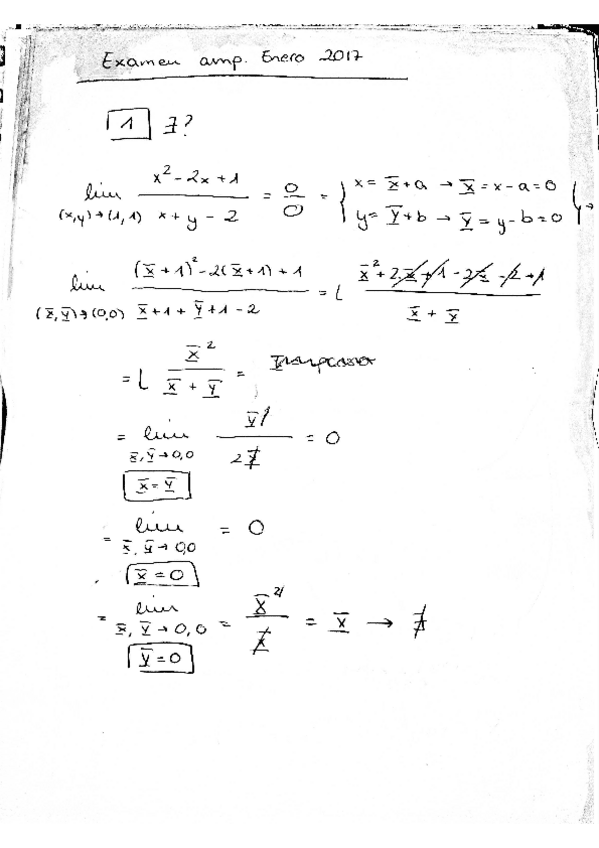 Examen amp. Enero 2017
1 ∃?
lim (x,y)→(1,1) x² - 2x + 1 / x + y - 2 = 0/0 = { x = X̄ + a → X̄ = x - a = 0
y = Ȳ + b → Ȳ = y - b = 0 } →
lim (X̄,Ȳ)→(0,0) (X̄+1)² - 2(X̄+1) + 1 / X̄ + 1 + Ȳ + 1 - 2 = L X̄² + 2X̄ + 1 - 2X̄ - 2 + 1 / X̄ + X̄
= L X̄² / X̄ + Ȳ =
= lim X̄,Ȳ→0,0 / 2 = 0
X̄ = Ȳ
= lim X̄,Ȳ→0,0 = 0
X̄ = 0
= lim X̄,Ȳ→0,0 = X̄² / X̄ = X̄ → ∄
Ȳ = 0